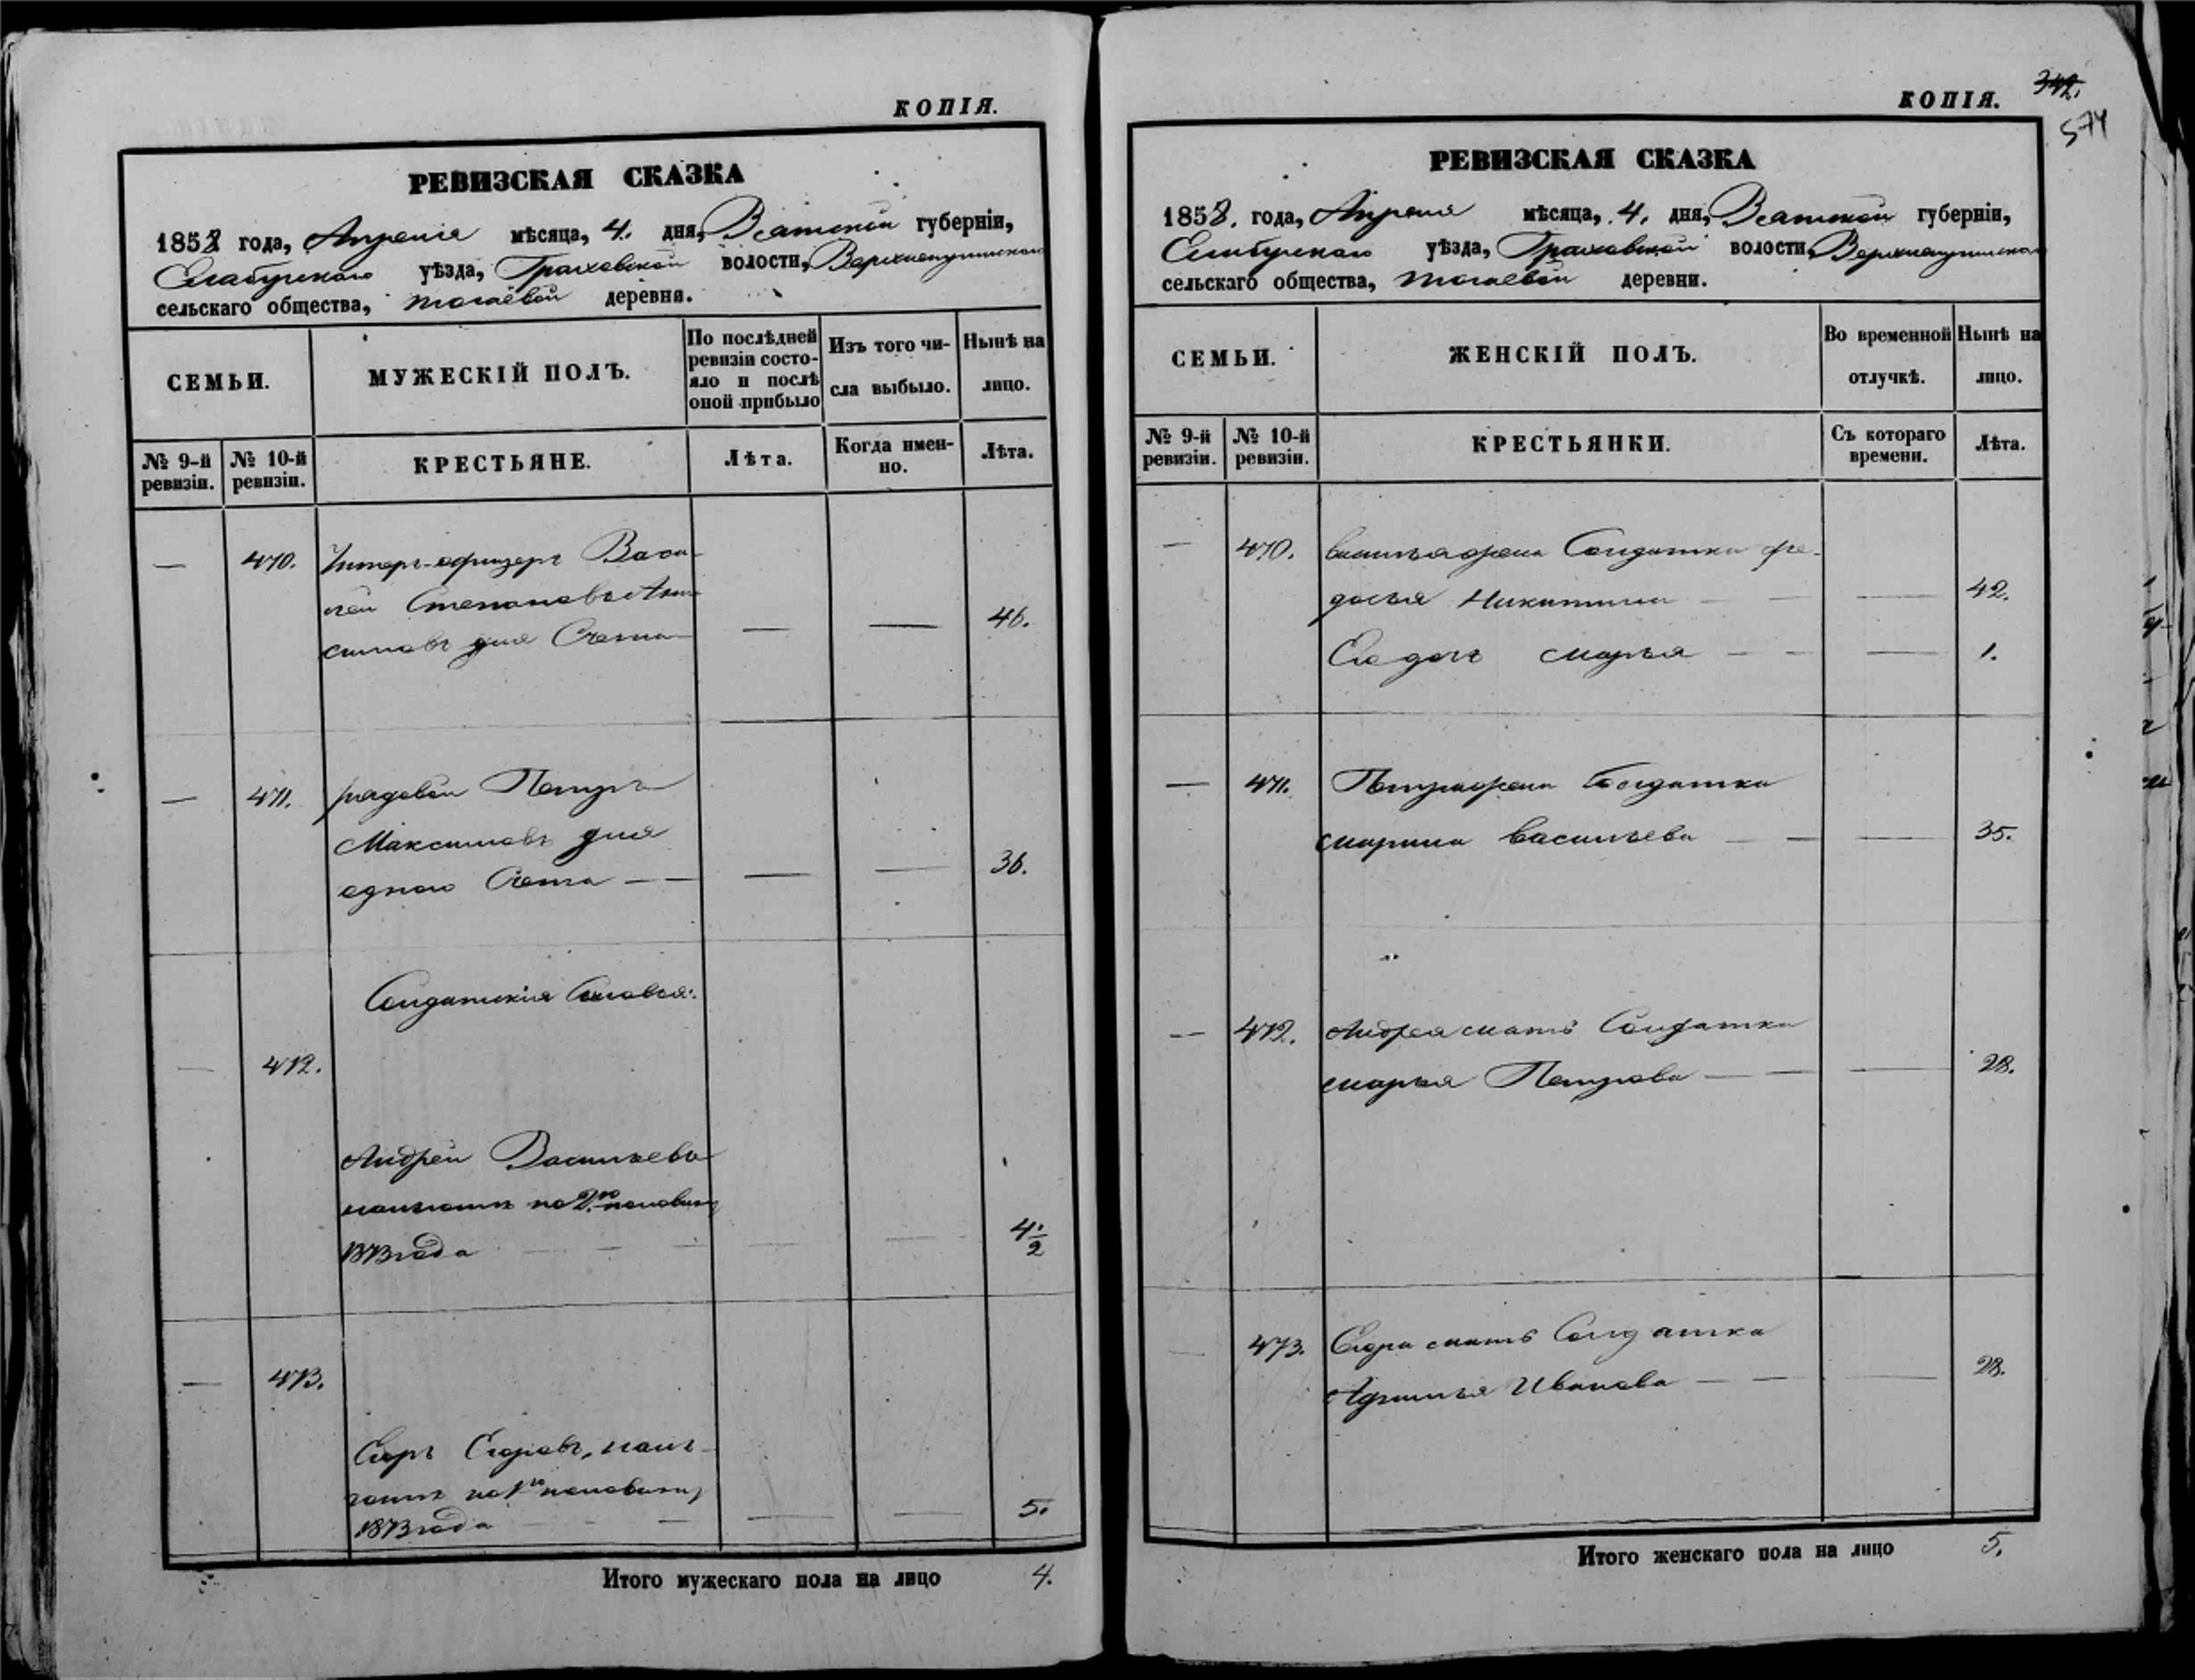 КОПІЯ.
РЕВИЗСКАЯ СКАЗКА
1858 года, Апреля мѣсяца, 4. дня, Вятской губерніи,
Елабугскаго уѣзда, Граховской волости,
сельскаго общества, деревни.
СЕМЬИ.
МУЖЕСКІЙ ПОЛЪ.
По послѣдней ревизіи состояло и послѣ оной прибыло
Изъ того числа выбыло.
Нынѣ на лицо.
№ 9-й ревизіи.
№ 10-й ревизіи.
КРЕСТЬЯНЕ.
Лѣта.
Когда именно.
Лѣта.
— 470. Унтеръ-офицеръ Васи-
лей Степановъ
для — — 46.
— 471. рядовой Петръ
Максимовъ для
одного Счета — — — — 36.
Солдатскія Сыновья:
— 472.
Андрей Васильевъ
на 2ю половину
1873 года — — — — — 4 1/2
— 473.
Егоръ Егоровъ,
на 1ю половину
1873 года — — — — — 5.
Итого мужескаго пола на лицо 4.
КОПІЯ.
342.
574
РЕВИЗСКАЯ СКАЗКА
1858. года, Апреля мѣсяца, 4. дня, Вятской губерніи,
Елабугскаго уѣзда, Граховской волости,
сельскаго общества, деревни.
СЕМЬИ.
ЖЕНСКІЙ ПОЛЪ.
Во временной отлучкѣ.
Нынѣ на лицо.
№ 9-й ревизіи.
№ 10-й ревизіи.
КРЕСТЬЯНКИ.
Съ котораго времени.
Лѣта.
— 470. Васильяжена Солдатка Фе-
досья Никитина — — — 42.
Его дочь Марья — — — 1.
— 471. Петражена Солдатка
Марина Васильева — — — 35.
— 472. Андрея мать Солдатка
Марья Петрова — — — 28.
— 473. Егора мать Солдатка
Иванова — — — 28.
Итого женскаго пола на лицо 5.